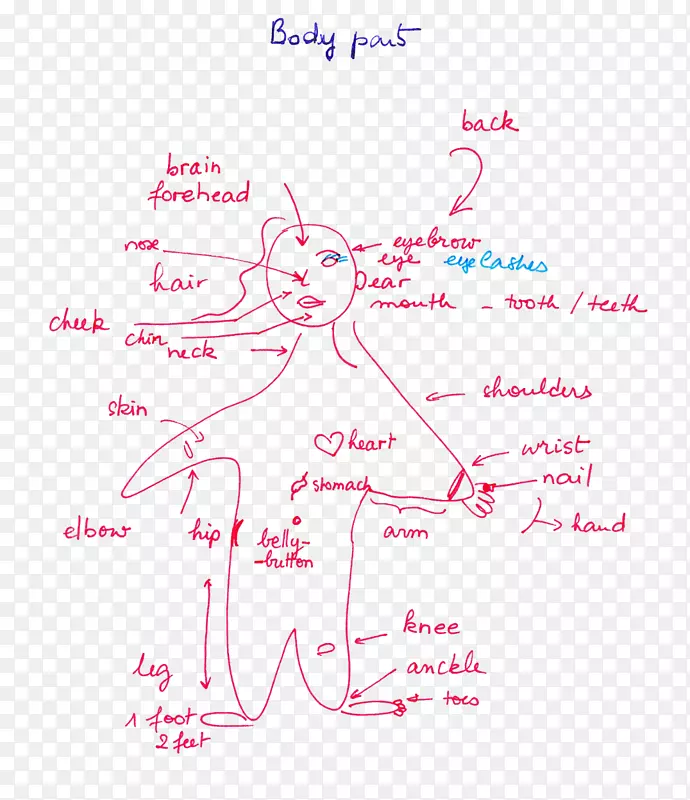 Body part
back
brain
forehead
nose
eyebrow
eye eyelashes
hair
ear
mouth - tooth / teeth
cheek
chin
neck
shoulders
skin
heart
wrist
stomach
nail
elbow
hip
belly-
-button
arm
hand
knee
leg
anckle
toes
1 foot
2 feet